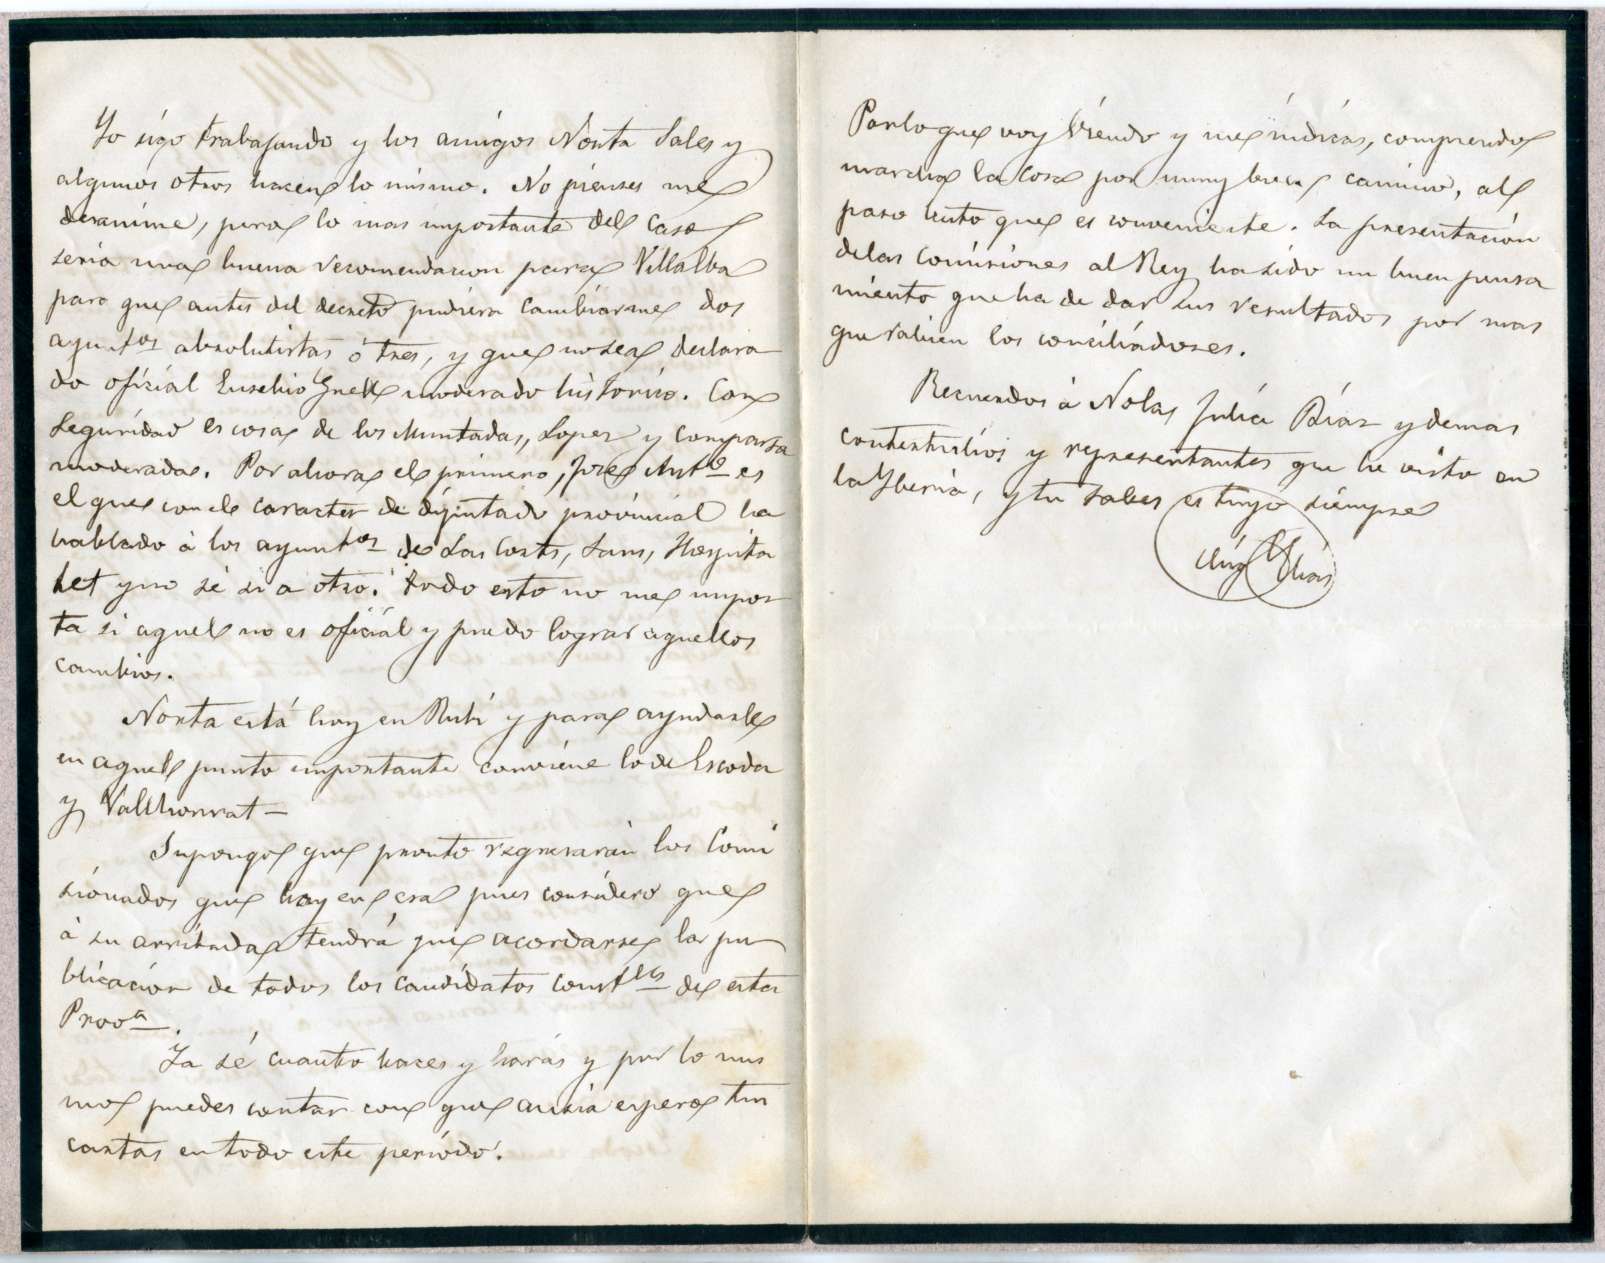 Yo sigo trabajando y los amigos Norta Sales y
algunos otros hacen lo mismo. No pienses me
desanime, pero lo mas importante del caso
seria una buena recomendacion para Villalba
para que antes del decreto pudiera cambiarme dos
ayuntos absolutistas ó tres, y que no sea declara
do oficial Eusebio Güell moderado historico. Con
seguridad es cosa de los Muntadas, Lopez y comparsa
moderada. Por ahora el primero, José Antº es
el que con el caracter de diputado provincial ha
hablado á los ayuntos de Las Corts, Sans, Hospita
let y no sé si a otro. todo esto no me impor
ta si aquel no es oficial y puedo lograr aquellos
cambios.
Norta está hoy en Rubí y para ayudarle
en aquel punto importante conviene lo de Escoda
y Vallhonrat—
Supongo que pronto regresarán los Comi
sionados que hay en esa pues considero que
á su arribada tendrá que acordarse la pu
blicación de todos los candidatos constles de esta
Provª.
Ya sé cuanto haces y harás y por lo mis
mo puedes contar con que ansia espero tus
cartas en todo este periodo.
Por lo que voy viendo y me indicas, comprendo
marcha la cosa por muy buen camino, al
paso lento que es conveniente. La presentación
de las Comisiones al Rey ha sido un buen pensa
miento que ha de dar sus resultados por mas
que rabien los conciliadores.
Recuerdos á Nolas Juliá Diaz y demas
contertulios y representantes que he visto en
la Yberia, y tu sabes es tuyo siempre